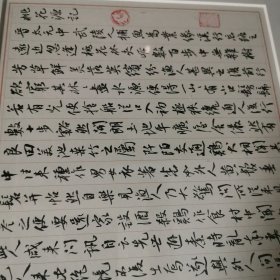 桃花源記
晉太元中武陵人捕魚為業緣溪行忘路之
遠近忽逢桃花林夾岸數百步中無雜樹
芳草鮮美落英繽紛漁人甚異之復前行
欲窮其林林盡水源便得一山山有小口髣髴
若有光便捨船從口入初極狹纔通人復行
數十步豁然開朗土地平曠屋舍儼然有
良田美池桑竹之屬阡陌交通雞犬相聞其
中往來種作男女衣著悉如外人黃髮
垂髫並怡然自樂見漁人乃大驚問所從來具
答之便要還家設酒殺雞作食村中聞
此人咸來問訊自云先世避秦時亂率妻
人來此絕境不復出焉遂與外